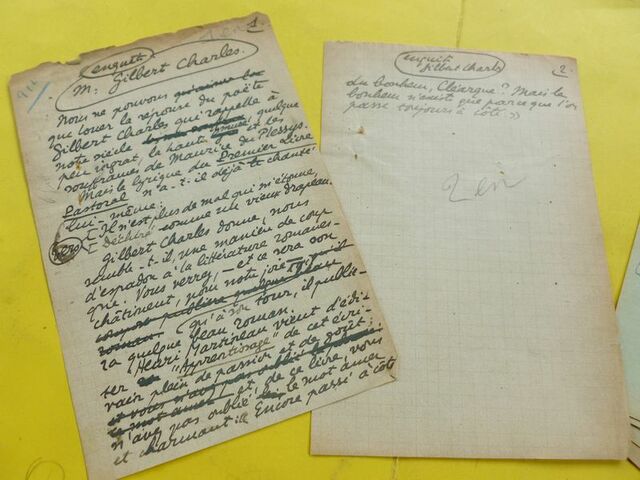 1
enquête
M. Gilbert Charles.
Nous ne pouvons
que louer la réponse du poète
Gilbert Charles qui rappelle à
notre siècle quelque
peu ingrat, la haute et les
souffrances de Maurice du Plessys.
Mais le lyrique du Premier Livre
Pastoral n'a-t-il déjà chanté
lui-même:
vers Il n'est plus de mal qui m'étonne,
Déchiré comme un vieux drapeau.
Gilbert Charles donne, nous
semble-t-il, une manière de coup
d'espadon à la littérature romanes-
que. Vous verrez, — et ce sera son
châtiment, nous note joie —
qu'à son tour, il publie-
ra quelque beau roman.
Henri Martineau vient d'édi-
ter "Apprentissage" de cet écri-
vain plein de passion et de goût;
et, de ce livre, vous
n'avez pas oublié le mot amer
et charmant: « Encore passé à côté
2.
enquête
Gilbert Charles
du bonheur, Cléergue? Mais le
bonheur n'existe que parce que l'on
passe toujours à côté. »
2 en